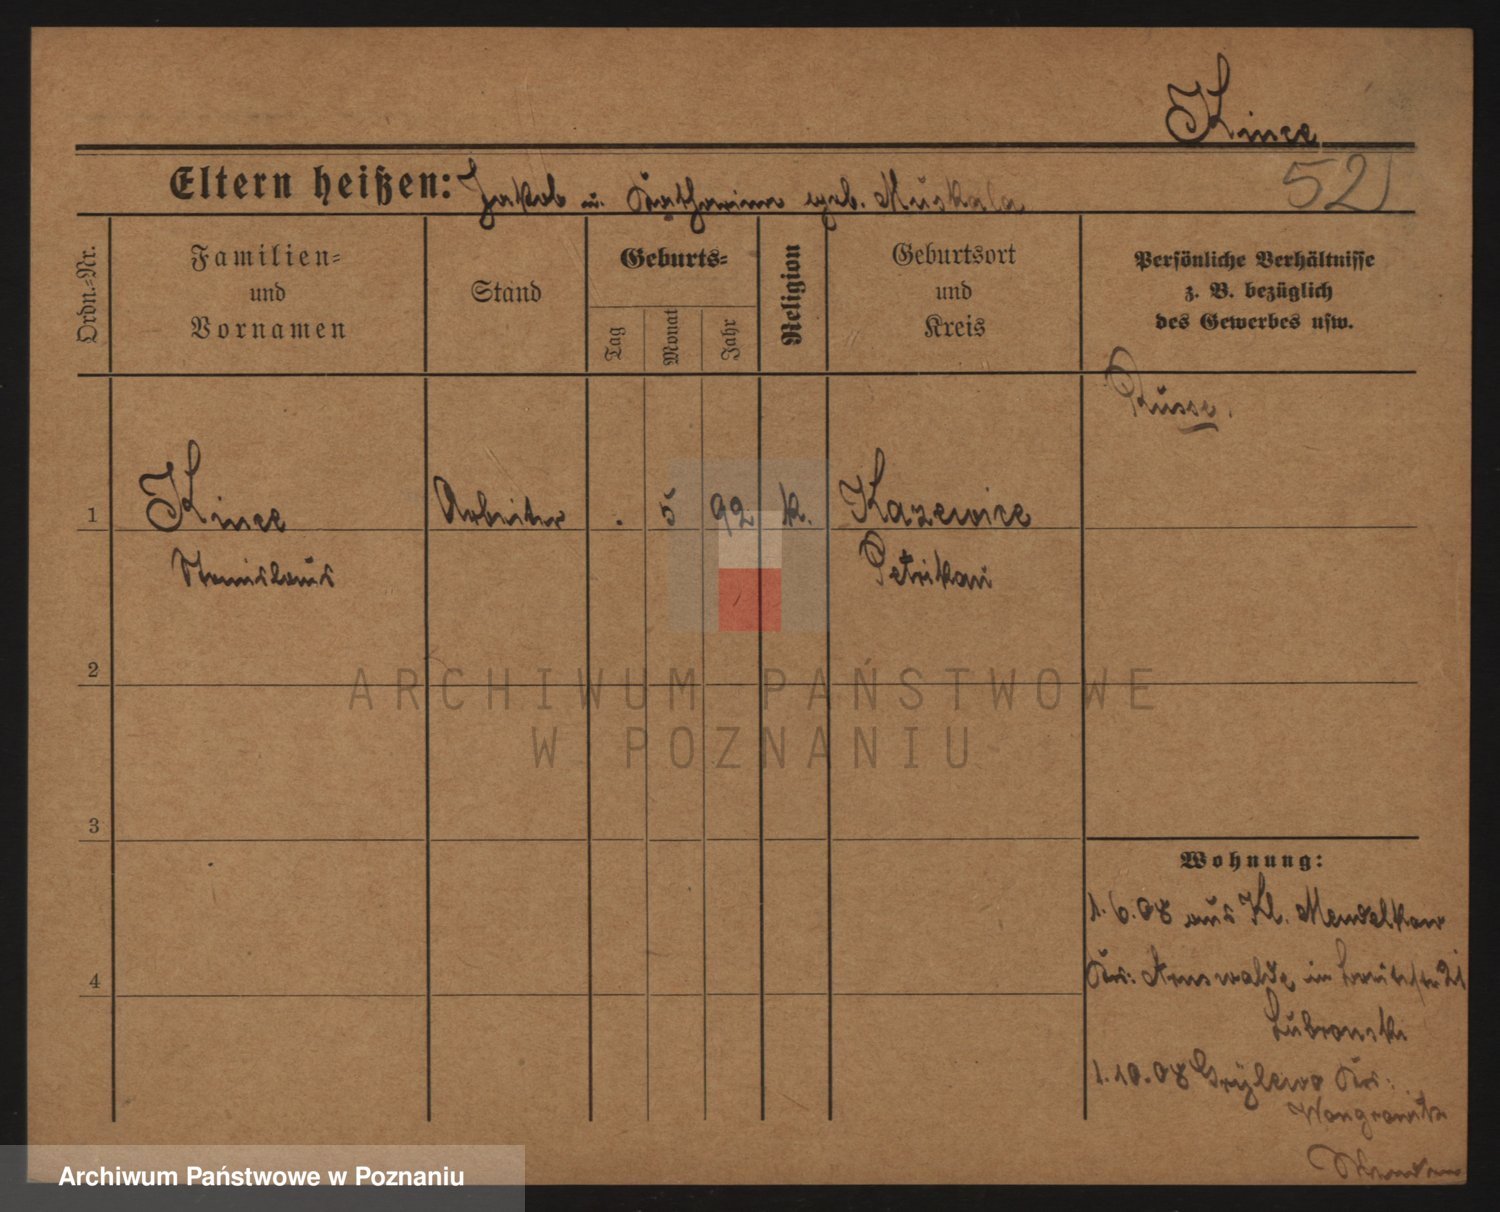 Kince
Eltern heißen: Jakob u. Katharina geb. Muskala
521
Ordn.-Nr.
Familien-
und
Vornamen
Stand
Geburts-
Tag
Monat
Jahr
Religion
Geburtsort
und
Kreis
Persönliche Verhältnisse
z. B. bezüglich
des Gewerbes usw.
Russe.
1 Kince Arbeiter . 5 92 k. Kazewice
Stanislaus Petrikau
2
ARCHIWUM PAŃSTWOWE
W POZNANIU
3
Wohnung:
1.6.08 aus Kl. Mendelkow
4
Kr: Arnswalde in 21
Lubronski
1.10.08 Grylewo Kr:
Wongrowitz
Archiwum Państwowe w Poznaniu